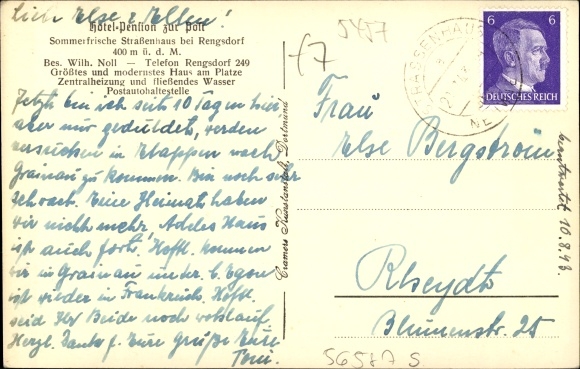 Lieb Else & Ellen!
Hotel-Pension zur Post
Sommerfrische Straßenhaus bei Rengsdorf
400 m ü. d. M.
Bes. Wilh. Noll — Telefon Rengsdorf 249
Größtes und modernstes Haus am Platze
Zentralheizung und fließendes Wasser
Postautohaltestelle
Jetzt bin ich seit 10 Tagen hier
aber nur geduldet, werden
versuchen in Etappen nach
Grainau zu kommen. Bin noch sehr
schwach. Eine Heimat haben
wir nicht mehr, Adeles Haus
ist auch fort! Hoffl. kommen
wir in Grainau unter. Egon
ist wieder in Frankreich. Hoffl.
seid Ihr Beide noch wohlauf.
Herzl. Dank f. Eure Grüße Eure
Toni.
Cramers Kunstanstalt, Dortmund
5457
f7
6 6
DEUTSCHES REICH
Frau
Else Bergström
Rheydt
Blumenstr. 25
beantwortet 10.8.43.
56587 S